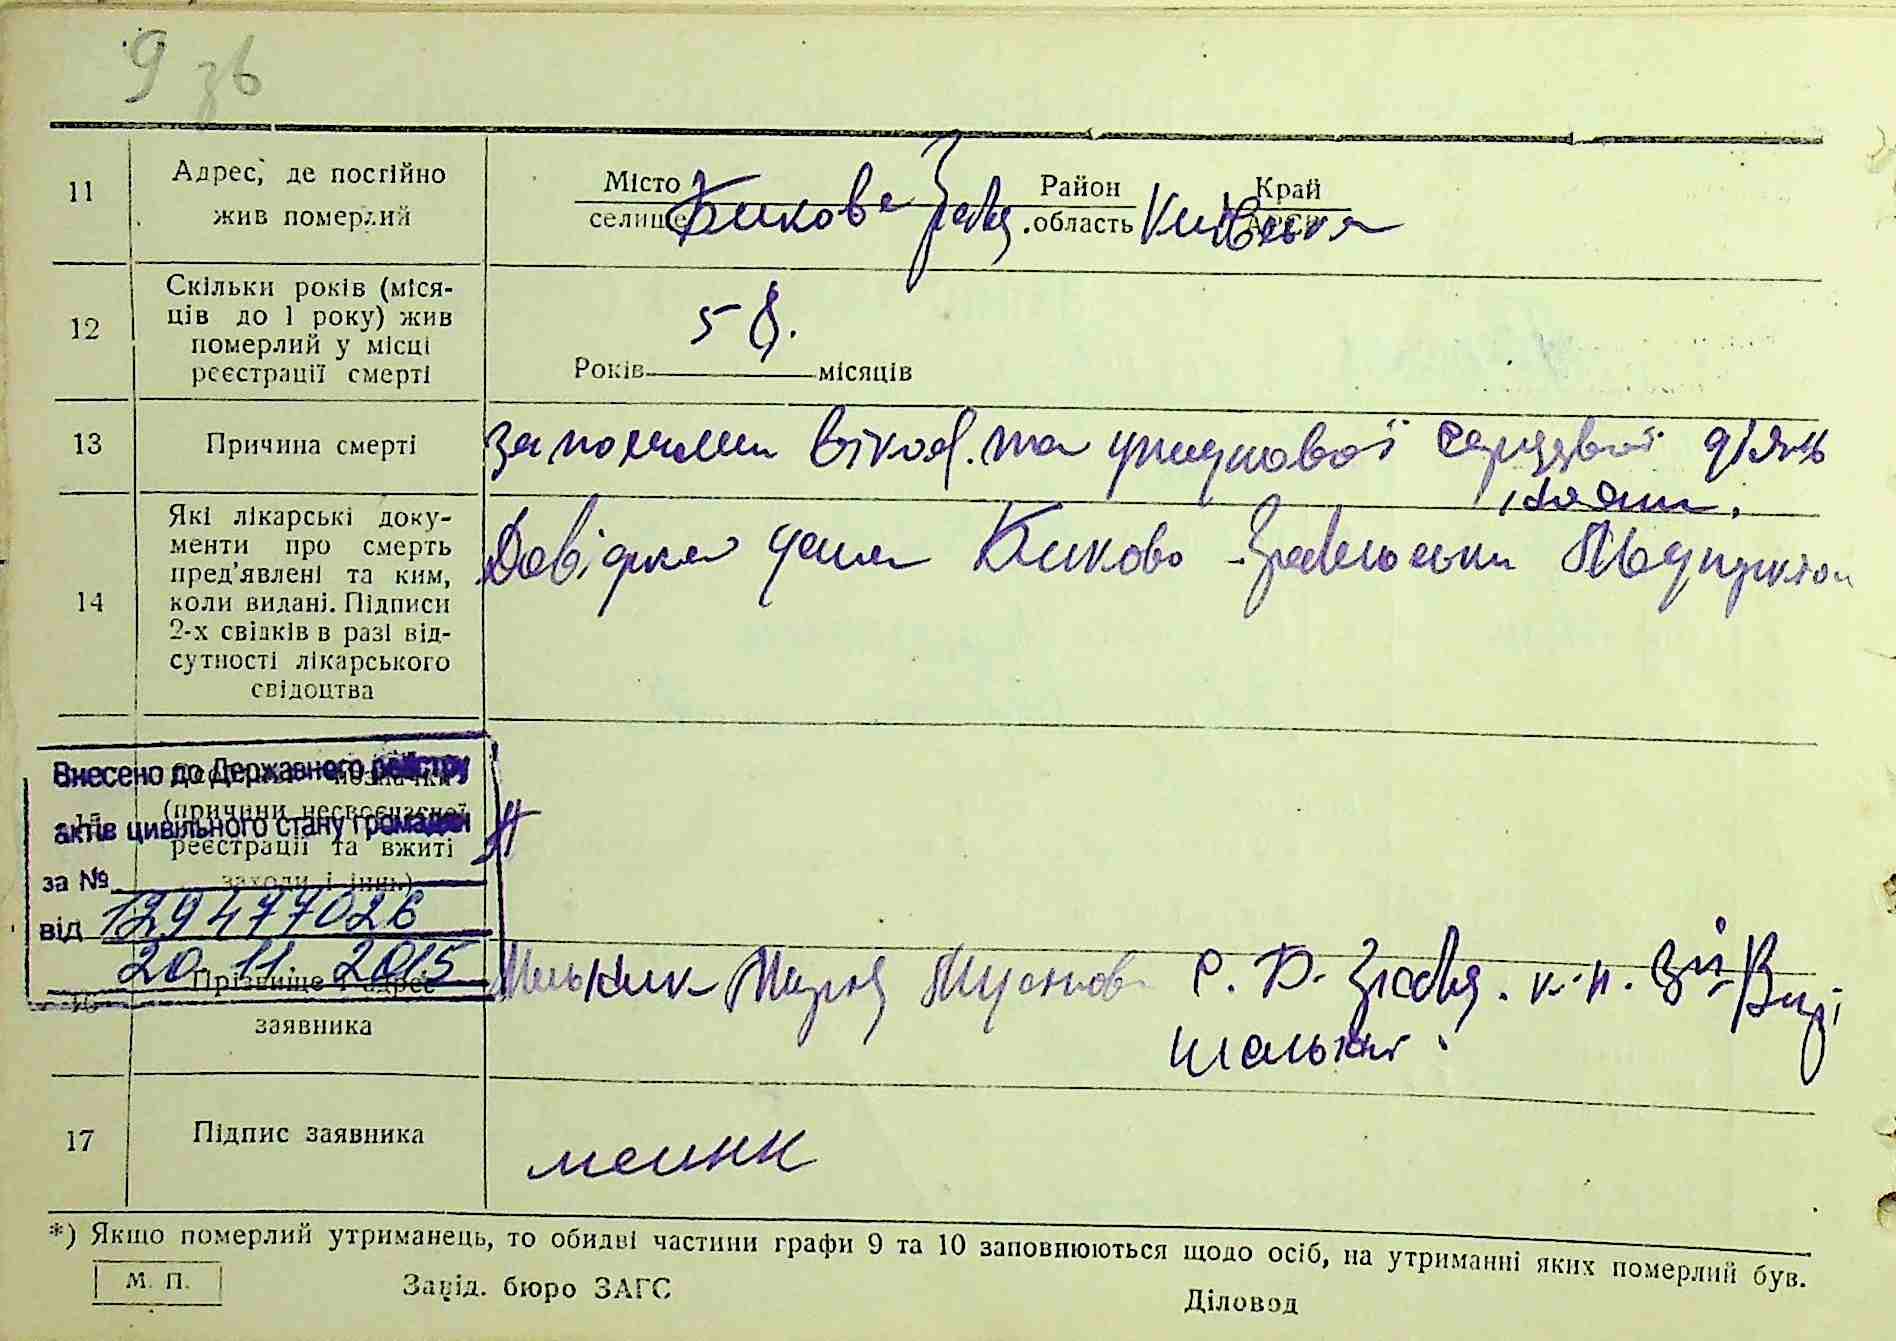 9 зв
11 Адрес, де постійно жив померлий
Місто селище Бикова Гребля Район область Київська Край АРСР
12 Скільки років (місяців до 1 року) жив померлий у місці реєстрації смерті
58.
Років місяців
13 Причина смерті
віков. та упадкової серцевої діяль
ности.
14 Які лікарські документи про смерть пред'явлені та ким, коли видані. Підписи 2-х свідків в разі відсутності лікарського свідоцтва
Довідка дана Биково-Гребельським Медпунктом
Внесено до Державного реєстру
актів цивільного стану громадян
за №
129477026
від
20. 11. 2015
15 позначки (причини несвоєчасної реєстрації та вжиті заходи і інш.)
16 Прізвище і адрес заявника
Мельник Марія с. Б. Гребля. к-п.
17 Підпис заявника
*) Якщо померлий утриманець, то обидві частини графи 9 та 10 заповнюються щодо осіб, на утриманні яких померлий був.
М. П. Завід. бюро ЗАГС Діловод